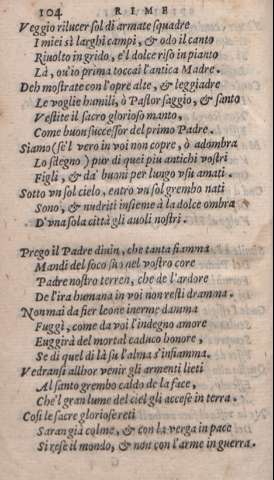 104 RIME
Veggio rilucer sol di armate squadre
I miei sì larghi campi, & odo il canto
Rivolto in grido, e'l dolce riso in pianto
Là, ou'io prima toccai l'antica Madre.
Deh mostrate con l'opre alte, & leggiadre
Le voglie humili, ò Pastor saggio, & santo
Vestite il sacro glorioso manto,
Come buon successor del primo Padre.
Siamo (se'l vero in voi non copre, ò adombra
Lo sdegno) pur di quei piu antichi vostri
Figli, & da' buoni per lungo vso amati.
Sotto vn sol cielo, entro vn sol grembo nati
Sono, & nudriti insieme à la dolce ombra
D'vna sola città gli auoli nostri.
Prego il Padre diuin, che tanta fiamma
Mandi del foco suo nel vostro core
Padre nostro terren, che de l'ardore
De l'ira humana in voi non resti dramma.
Non mai da fier leone inerme damma
Fuggì, come da voi l'indegno amore
Fuggirà del mortal caduco honore,
Se di quel di là su l'alma s'infiamma.
Vedransi allhor venir gli armenti lieti
Al santo grembo caldo de la face,
Che'l gran lume del ciel gli accese in terra.
Cosi le sacre gloriose reti
Saran già colme, & con la verga in pace
Si rese il mondo, & non con l'arme in guerra.